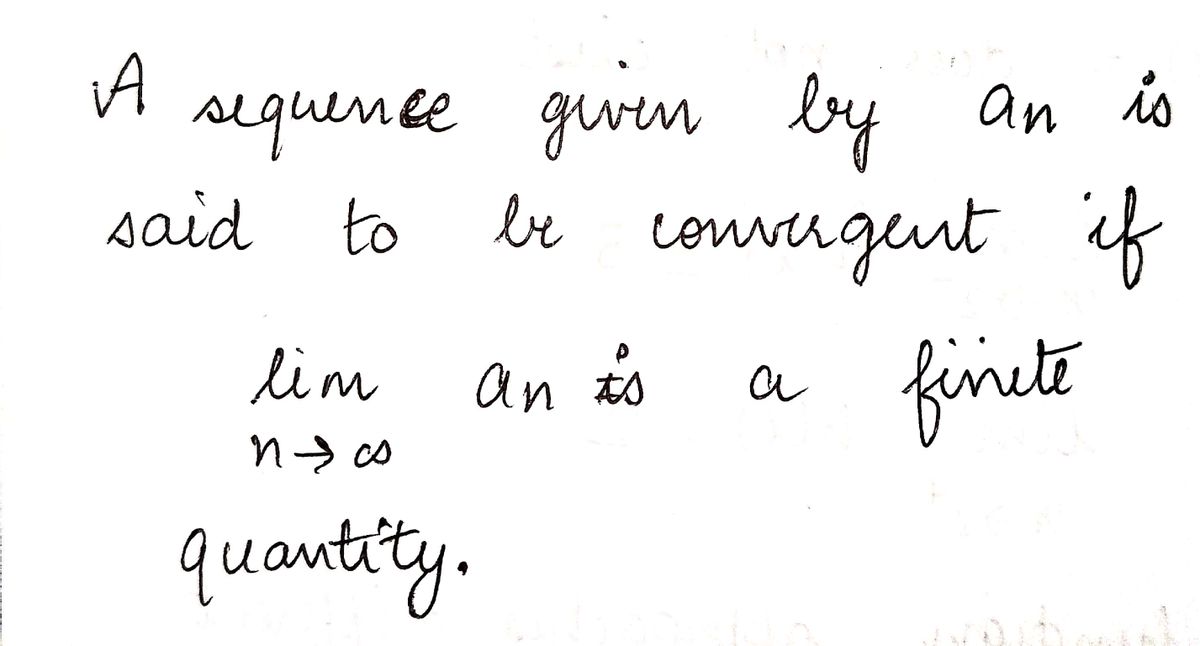 A sequence given by an is
said to be convergent if
lim an is a finite
n→∞
quantity.